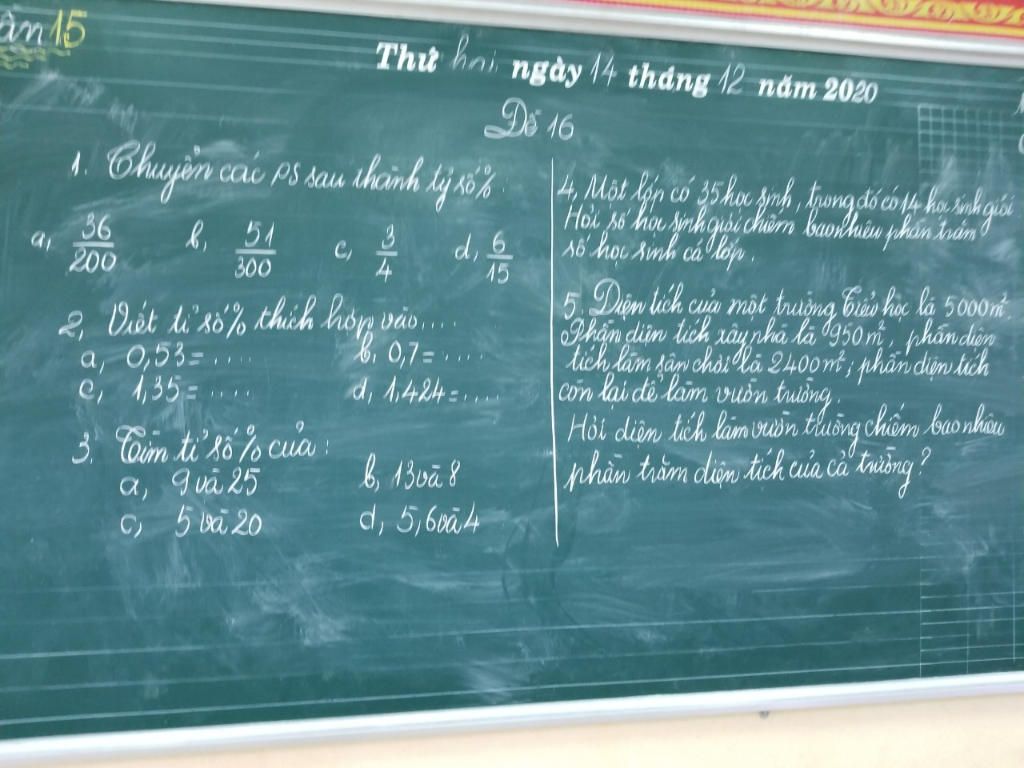 ần 15
Thứ hai ngày 14 tháng 12 năm 2020
Đề 16
1. Chuyển các PS sau thành tỷ số %.
a, 36/200 b, 51/300 c, 3/4 d, 6/15
2, Viết tỉ số % thích hợp vào....
a, 0,53 = .... b, 0,7 = ....
c, 1,35 = .... d, 1,424 = ....
3. Tìm tỉ số % của:
a, 9 và 25 b, 13 và 8
c, 5 và 20 d, 5,6 và 4
4, Một lớp có 35 học sinh, trong đó có 14 học sinh giỏi
Hỏi số học sinh giỏi chiếm bao nhiêu phần trăm
số học sinh cả lớp.
5. Diện tích của một trường Tiểu học là 5000m².
Phần diện tích xây nhà là 950m², phần diện
tích làm sân chơi là 2400m²; phần diện tích
còn lại để làm vườn trường.
Hỏi diện tích làm vườn trường chiếm bao nhiêu
phần trăm diện tích của cả trường?